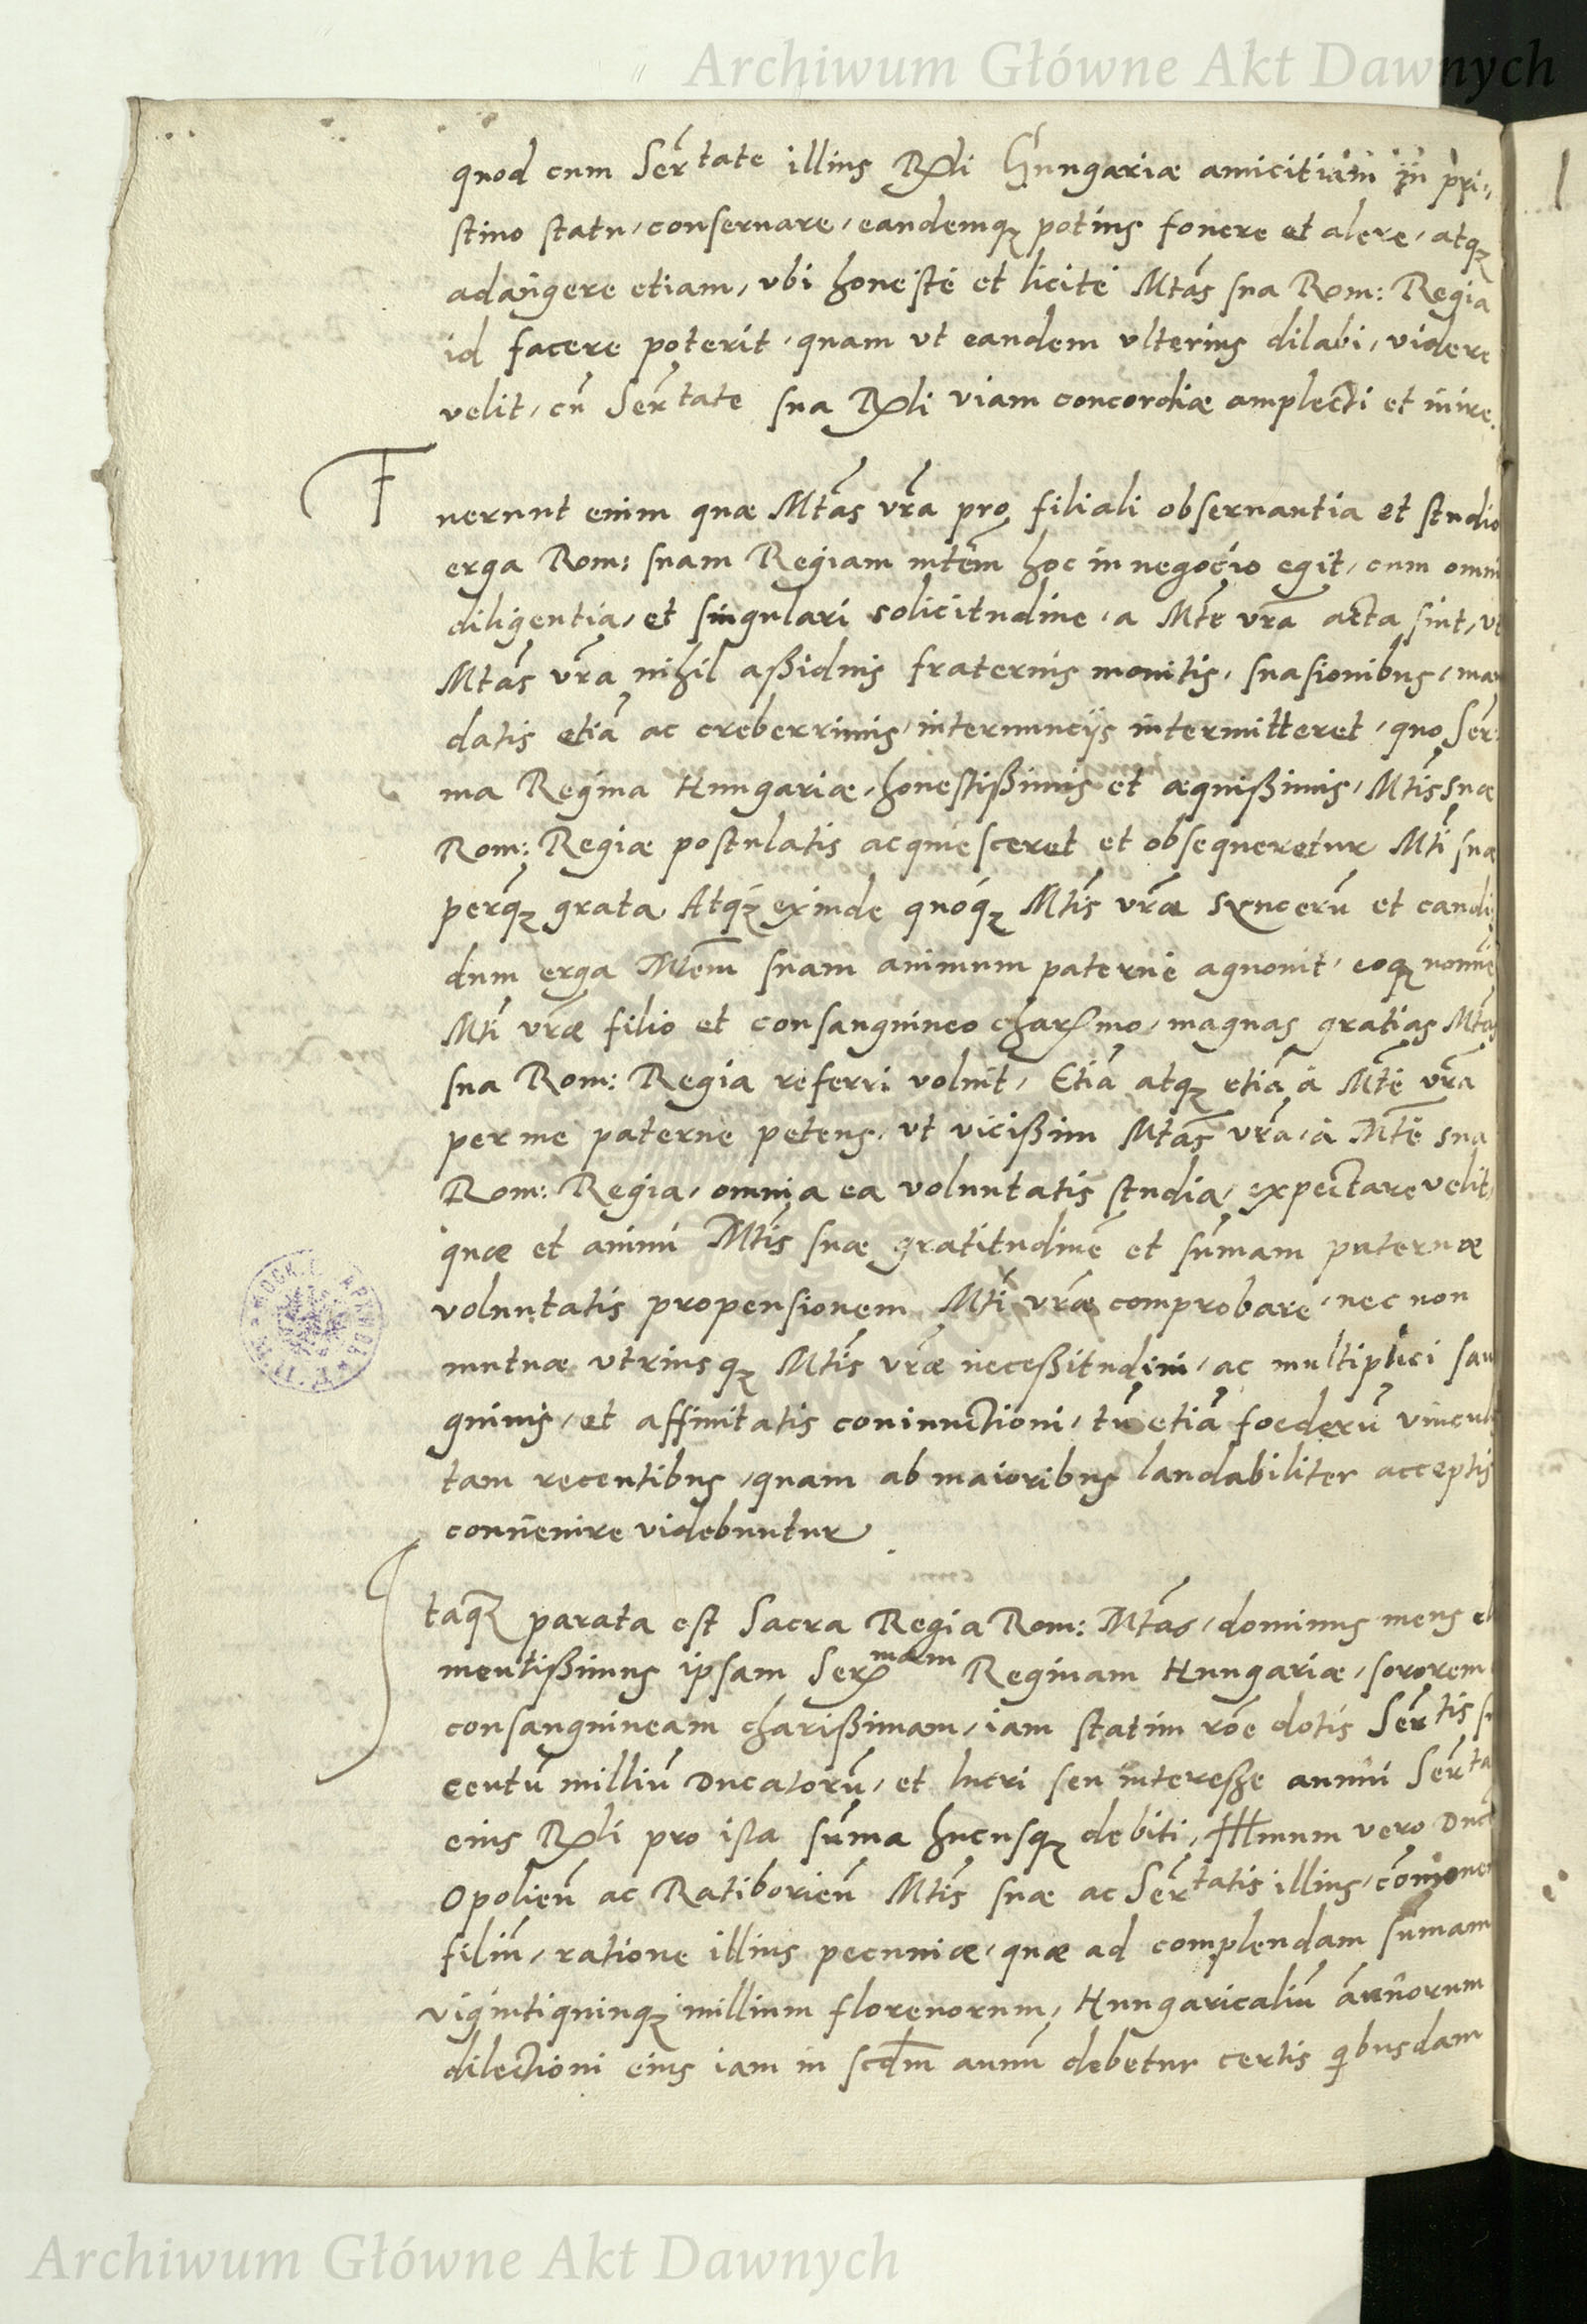 Archiwum Główne Akt Dawnych
quod cum Ser̃tate illius Rꝉi Hungariæ amicitiam in pri=
stino statu, conseruare, eandemqꝫ potius fouere et alere, atqꝫ
adaugere etiam, vbi honesté et licité Mtãs sua Rom: Regia
id facere poterit, quam vt eandem vlterius dilabi, videre
velit, cũ Ser̃tate sua Rꝉi viam concordiæ amplecti et inire.
Fuerunt enim quæ Mtãs vr̃a pro filiali obseruantia et studio
erga Rom: suam Regiam mtẽm hoc in negocio egit, cum omni
diligentia, et singulari solicitudine, a Mtẽ vr̃a acta sint, vt
Mtãs vr̃a nihil aßiduis fraternis monitis, suasionibus, man
datis etiã ac creberrimis, internuncijs intermitteret, quo Ser:
ma Regina Hungariæ, honestißimis et æquißimis, Mtĩs suæ
Rom: Regiæ postulatis acquiesceret et obsequeretur Mtĩ suæ
perq̃ꝫ grata Atqꝫ exinde quóqꝫ Mtĩs vr̃æ syncerũ et candi
dum erga Mtẽm suam animum paterne agnouit, eoqꝫ nomine
Mtĩ vr̃æ filio et consanguineo charꝭmo, magnas gratias Mtãs
sua Rom: Regia referri voluit, Etiã atqꝫ etiã à Mtẽ vr̃a
per me paterne petens, vt vicißim Mtãs vr̃a, à Mtẽ sua
Rom: Regia, omnia ea voluntatis studia, expectare velit,
quæ et animi Mtĩs suæ gratitudinẽ et sũmam paternæ
voluntatis propensionem Mtĩ vr̃æ comprobare, nec non
mutuæ vtriusqꝫ Mtĩs vr̃æ neceßitudini, ac multiplici san
guinis, et affinitatis coniunctioni, tũ etiã foederũ vinculis
tam recentibus, quam ab maioribus laudabiliter acceptis
conuenire videbuntur
Itaqꝫ parata est Sacra Regia Rom: Mtãs, dominus meus cle
mentißimus ipsam Serꝭmam Reginam Hungariæ, sororem
consanguineam charißimam, iam statim rõe dotis Ser̃tis su
centũ milliũ Ducatorũ, et lucri seu intereße annui Ser̃ta
eius Rꝉi pro ista sũma hucusqꝫ debiti, Illmum vero Duc
Opolieñ ac Ratiborieñ Mtĩs suæ ac Ser̃tatis illius, com̃unem
filiũ, ratione illius pecuniæ, quæ ad complendam sũmam
vigintiquinqꝫ millium florenorum, Hungaricaliũ annuorum
dilectioni eius iam in scd̃m annũ debetur certis qibusdam
Archiwum Główne Akt Dawnych